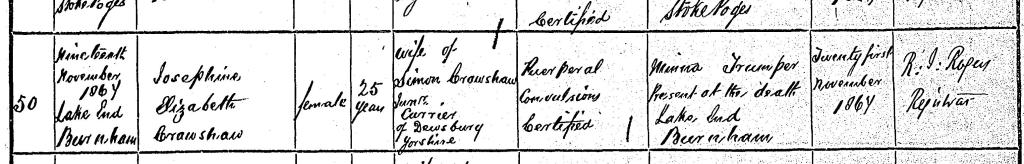 Stoke Poges
Certified
Stoke Poges
50
Nineteenth
November
1864
Lake End
Burnham
Josephine
Elizabeth
Crawshaw
female
25
Years
wife of
Simon Crawshaw
Junr.
Carrier
of Dewsbury
Yorshire
Puerperal
Convulsions
Certified
Minna Trumper
Present at the death
Lake End
Burnham
Twenty first
November
1864
R. I. Roger
Registrar